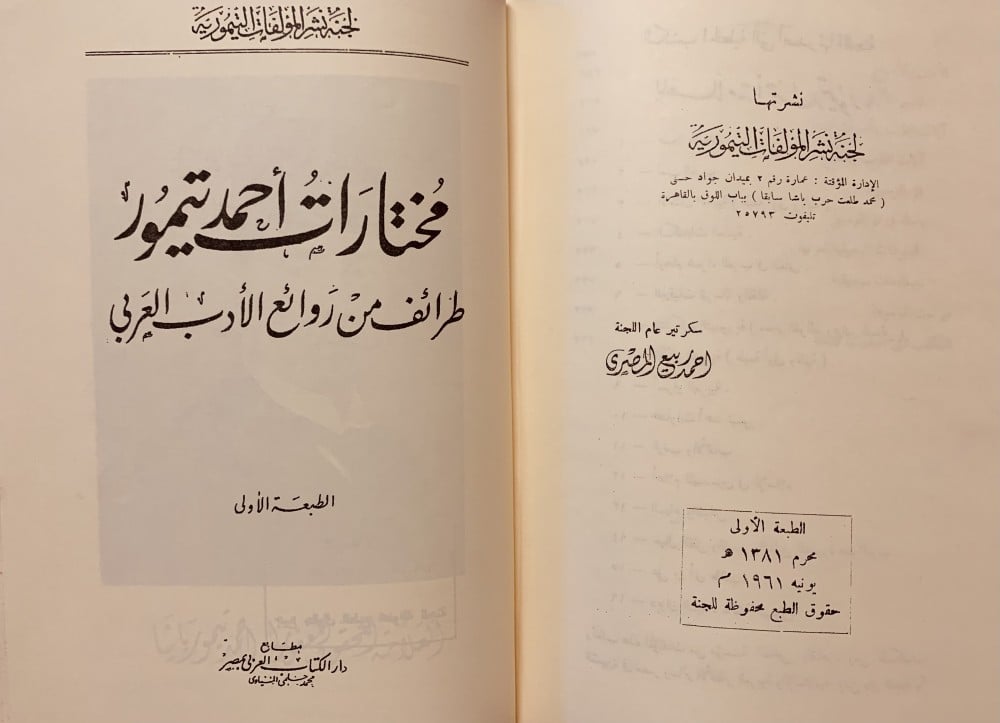 لجنة نشر المؤلفات التيمورية
مختارات أحمد تيمور
طرائف من روائع الأدب العربي
الطبعة الأولى
مطابع
دار الكتاب العربي بمصر
محمد حلمي المنياوي
نشرتها
لجنة نشر المؤلفات التيمورية
الإدارة المؤقتة : عمارة رقم ٢ بميدان جواد حسنى
( محمد طلعت حرب باشا سابقا ) بباب اللوق بالقاهرة
تليفون ٢٥٧٩٣
سكرتير عام اللجنة
احمد ربيع المصري
الطبعة الأولى
محرم ١٣٨١ ھ
يونيه ١٩٦١ م
حقوق الطبع محفوظة للجنة